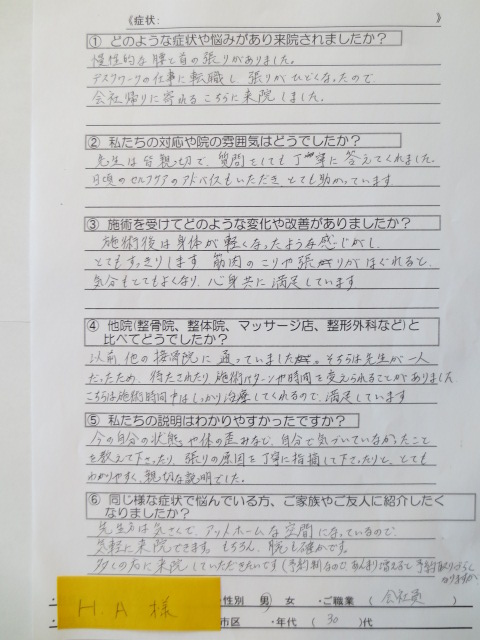 《症状: 》
① どのような症状や悩みがあり来院されましたか?
慢性的な腰と首の張りがありました。
デスクワークの仕事に転職し 張りがひどくなったので、
会社帰りに寄れるこちらに来院しました。
② 私たちの対応や院の雰囲気はどうでしたか?
先生は皆親切で、質問をしても丁寧に答えてくれました。
日頃のセルフケアのアドバイスもいただき とても助かっています。
③ 施術を受けてどのような変化や改善がありましたか?
施術後は身体が軽くなったような感じがし、
とてもすっきりします 筋肉のこりや張りがほぐれると、
気分もとてもよくなり、心身共に満足しています
④ 他院(整骨院、整体院、マッサージ店、整形外科など)と
比べてどうでしたか?
以前他の接骨院に通っていました。そちらは先生が一人
だったため、待たされたり 施術パターンや時間を変えられることがありました
こちらは施術時間中はしっかり治療してくれるので、満足しています
⑤ 私たちの説明はわかりやすかったですか?
今の自分の状態や体の歪みなど、自分で気づいていなかったこと
を教えて下さったり、張りの原因を丁寧に指摘して下さったりと、とても
わかりやすく、親切な説明でした。
⑥ 同じ様な症状で悩んでいる方、ご家族やご友人に紹介したく
なりましたか?
先生方は気さくで、アットホームな空間になっているので、
気軽に来院できます。もちろん、腕も確かです。
多くの方に来院していただきたいです(予約制なので、あんまり増えると予約取りづらく
なりますが
H.A 様
・性別 男 女 ・ご職業 ( 会社員
市区 ・年代 ( 30 )代